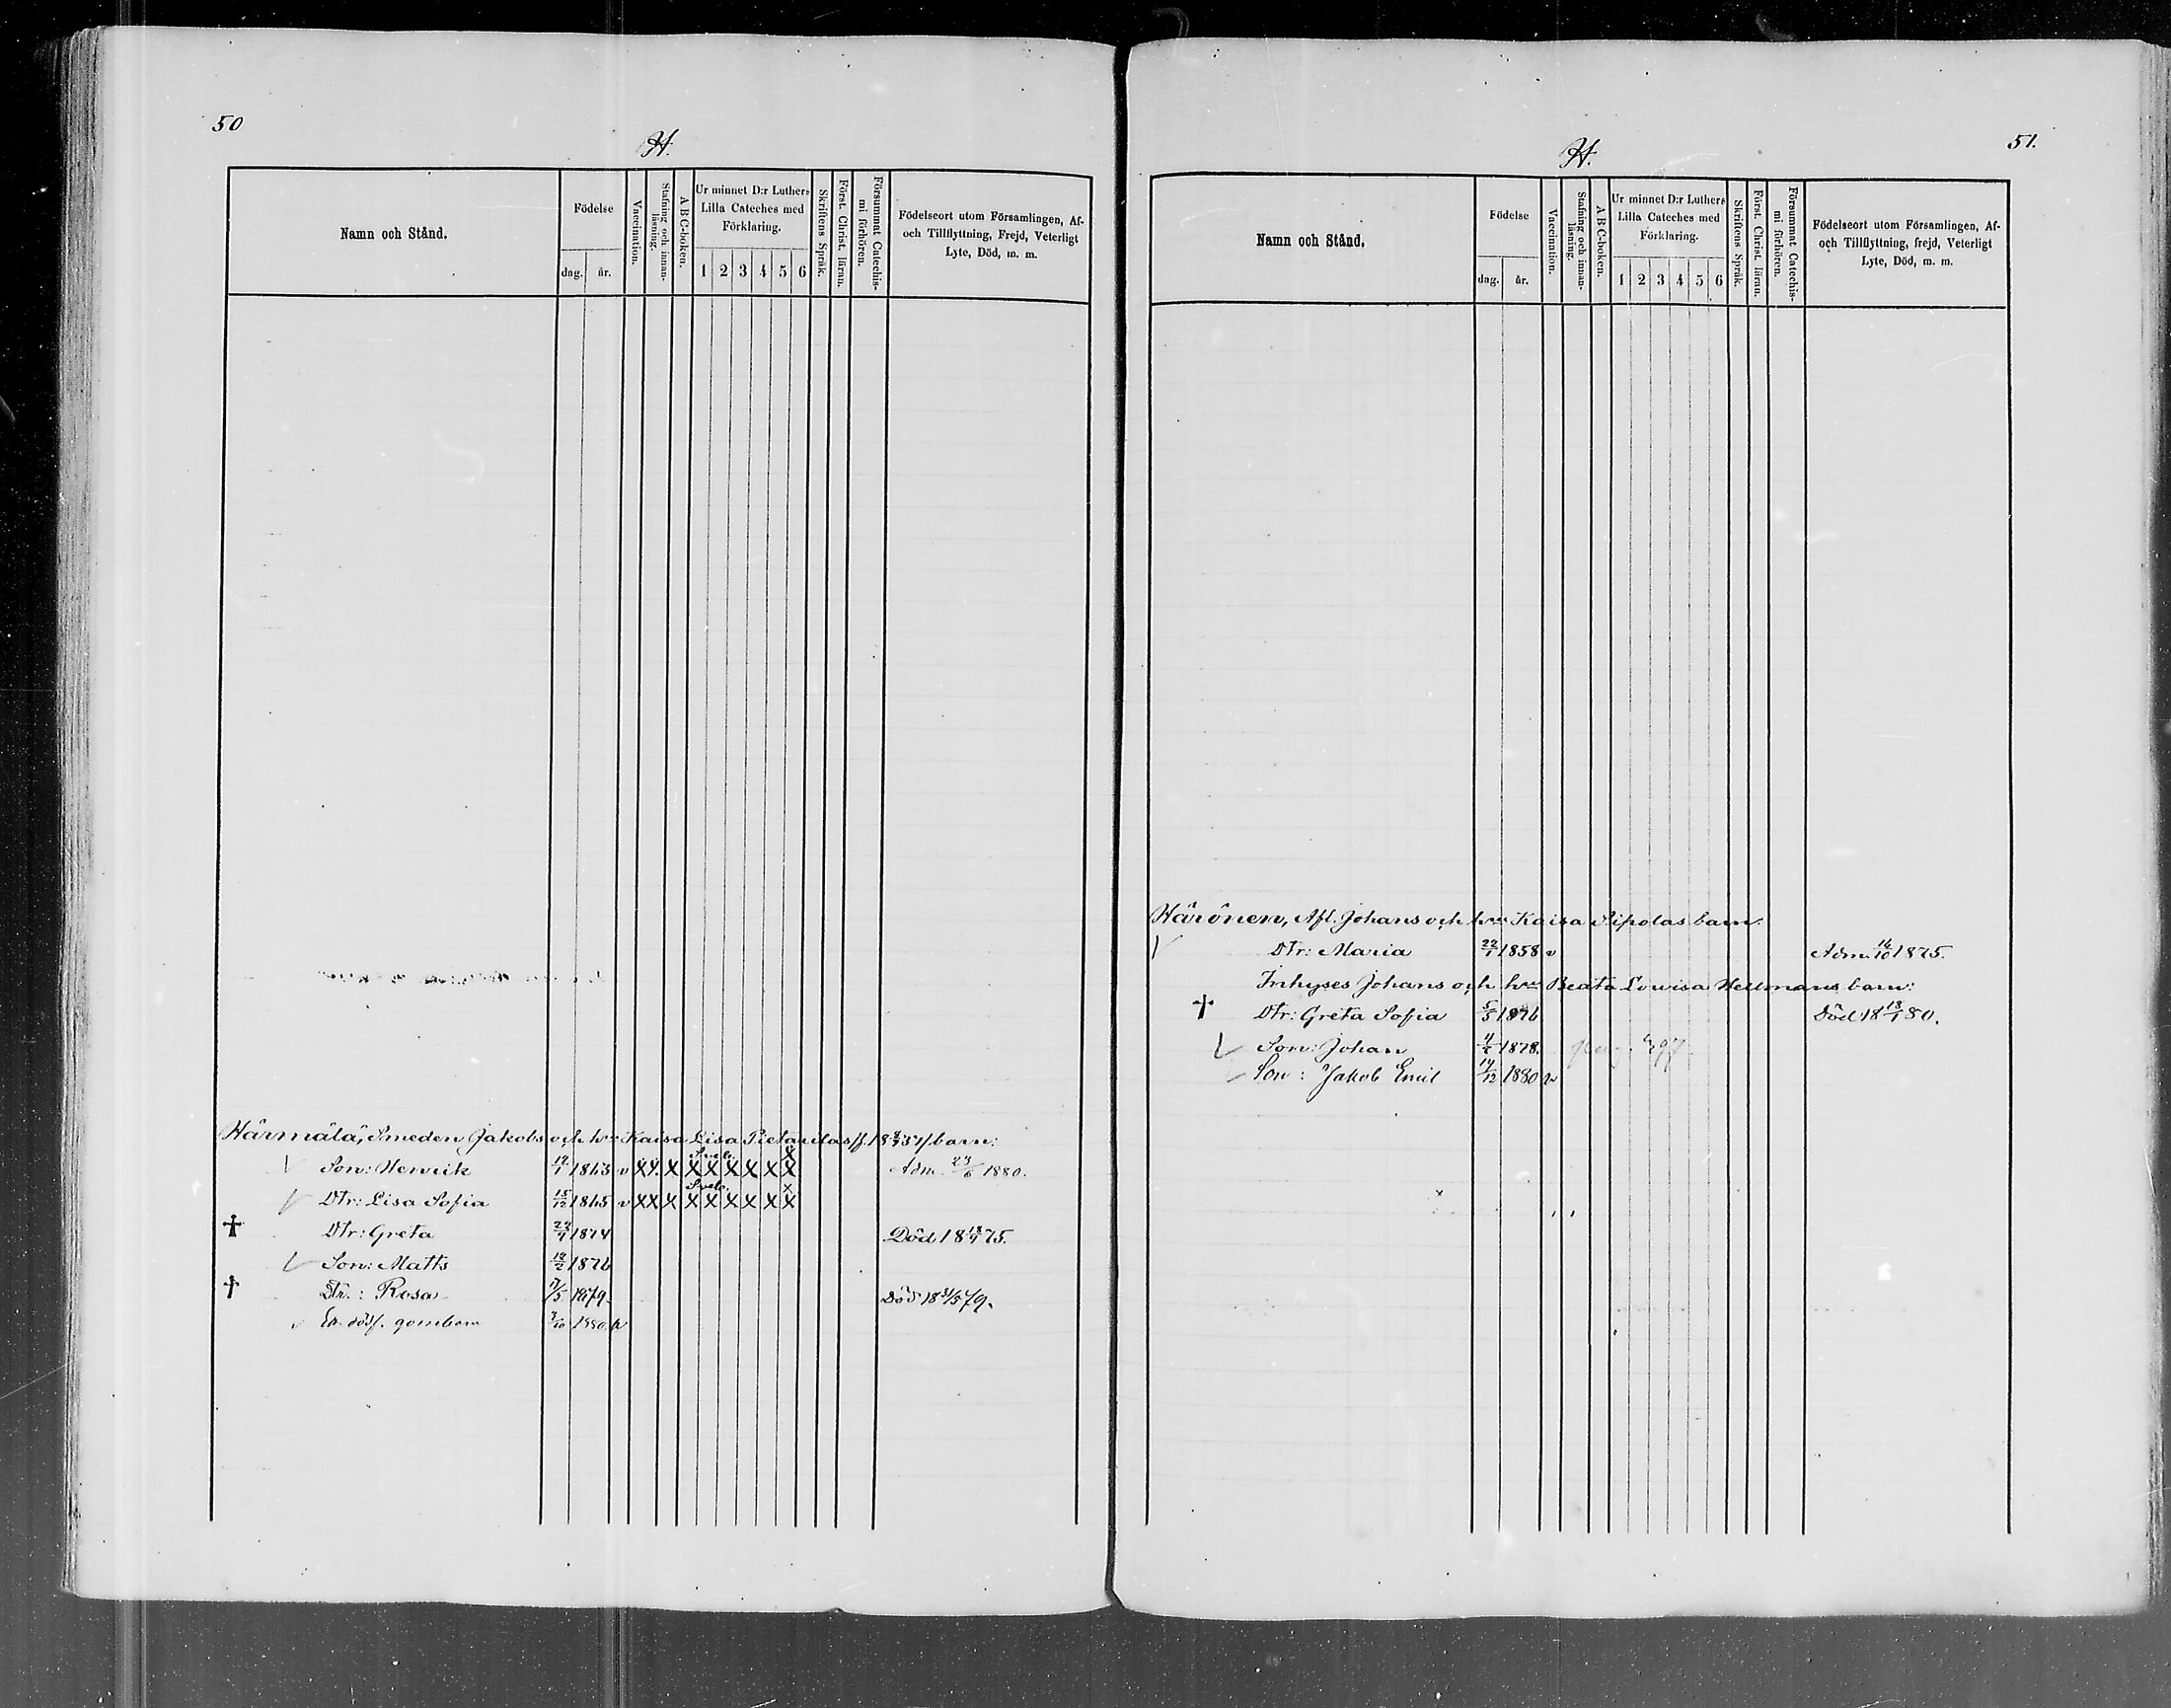 50
H.
Namn och Stånd.
Födelse
dag. år.
Vaccination.
Stafning och innanläsning.
A B C-boken.
Ur minnet D:r Luthers Lilla Cateches med Förklaring.
1 2 3 4 5 6
Skriftens Språk.
Först. Christ. läran.
Försummat Catechismi förhören.
Födelseort utom Församlingen, Af- och Tillflyttning, Frejd, Veterligt Lyte, Död, m. m.
Härmälä, Smeden Jakobs och h:s Kaisa Lisa Pietarilas barn:
Son: Henrik 1863 v X X X X X X X X X Adm. 1880.
Dtr: Lisa Sofia 15/12 1865 v X X X X X X X X X
† Dtr: Greta 1874 Död 18 75.
Son: Matts 1876
† Dtr.: Rosa 1879. Död 18 79.
1880. v
51.
H.
Namn och Stånd.
Födelse
dag. år.
Vaccination.
Stafning och innanläsning.
A B C-boken.
Ur minnet D:r Luthers Lilla Cateches med Förklaring.
1 2 3 4 5 6
Skriftens Språk.
Först. Christ. läran.
Försummat Catechismi förhören.
Födelseort utom Församlingen, Af- och Tillflyttning, frejd, Veterligt Lyte, Död, m. m.
Härönen, Afl. Johans och h:s Kaisa Sipolas barn:
Dtr: Maria 22/1 1858 v Adm. 1875.
Inhyses Johans och h:s Beata Lowisa Hellmans barn:
† Dtr: Greta Sofia 5/5 1876 Död 18 80.
Son: Johan 1878.
Son: Jakob Emil 1880 v